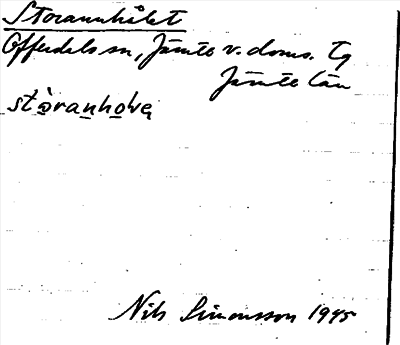 Storannhålet
Offerdals sn, Jämte v. doms. Tg
Jämte län
Nils Simonsson 1945